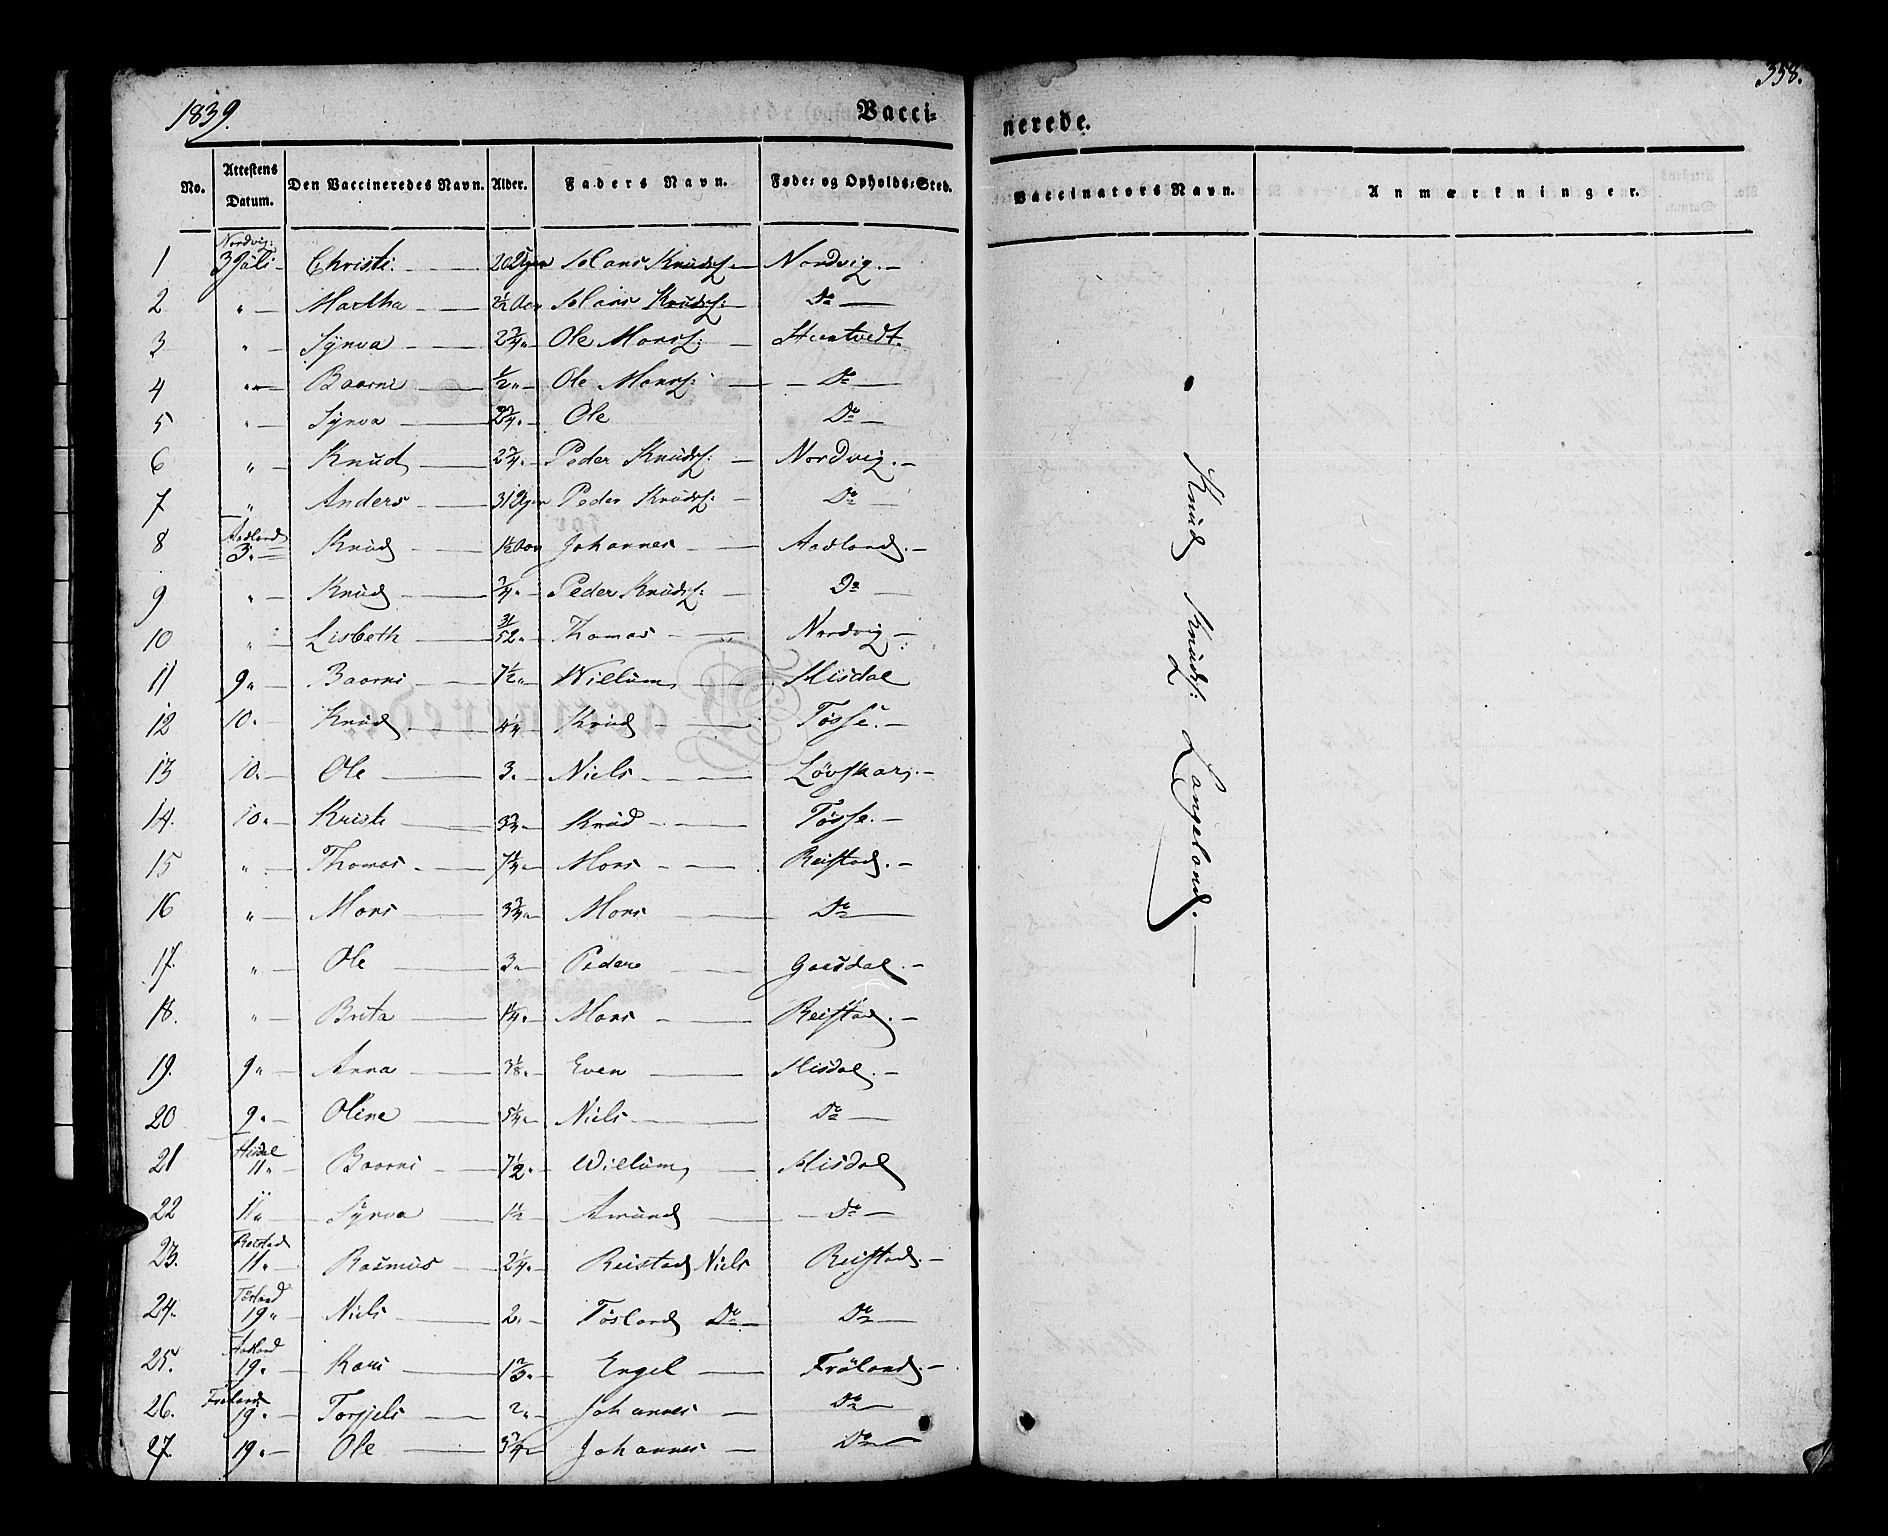 358.
1839.
Vacci-
nerede.
No. Attestens Datum. Den Vaccineredes Navn. Alder. Faders Navn. Føde- og Opholds-Sted.
Vaccinators Navn. Anmærkninger.
Nordvig:
1 3 Juli Christi. 20 Uger Mons Knuds: Nordvig.
2 " Martha 2½ Aar Mons Knuds: Do
3 " Synva 2¾ " Ole Monss: Stuetvedt.
4 " Baarni ½ " Ole Monss: Do
5 " Synva Ole Do
6 " Knud 2¾ " Peder Knuds: Nordvig.
7 " Anders 31 Uger Peder Knuds: Do
Aadland
8 3 " Knud 1½ Aar Johannes Aadland.
9 " Knud ¾ " Peder Knuds: Do
10 " Lisbeth 31/52 " Thomas Nordvig
11 9 " Baarni 7½ " Willum Misdal
12 10. Knud 4 " Knud Tösse.
13 10. Ole 3 " Niels Løvskar.
14. 10 " Kristi 3¾ Knud Tösse.
15 " Thomas 7¼ Mons Reistad.
16 " Mons 3¾ " Mons Do
17. " Ole 3 " Peder Gaasdal.
18. " Brita 1¼ " Mons Reistad.
19. 9 " Anna 3⅛ " Even Misdal.
20 9 " Oline 5¼ " Niels Do
Misdal
21 11 " Baarni 7½ " Willum Misdal
22 11 " Synva 1½ Amund Do
Reistad
23. 11 " Rasmus 2¼ " Reistad Niels Reistad.
Tösland
24. 19 " Niels 2 " Tösland Do Do
Aasland
25. 19 " Kari 1⅔ " Engel Fröland.
Fröland
26. 19 " Torgjels 2 " Johannes Do
27. 19 " Ole 3¾ Johannes Do
Knud Knuds: Langeland.